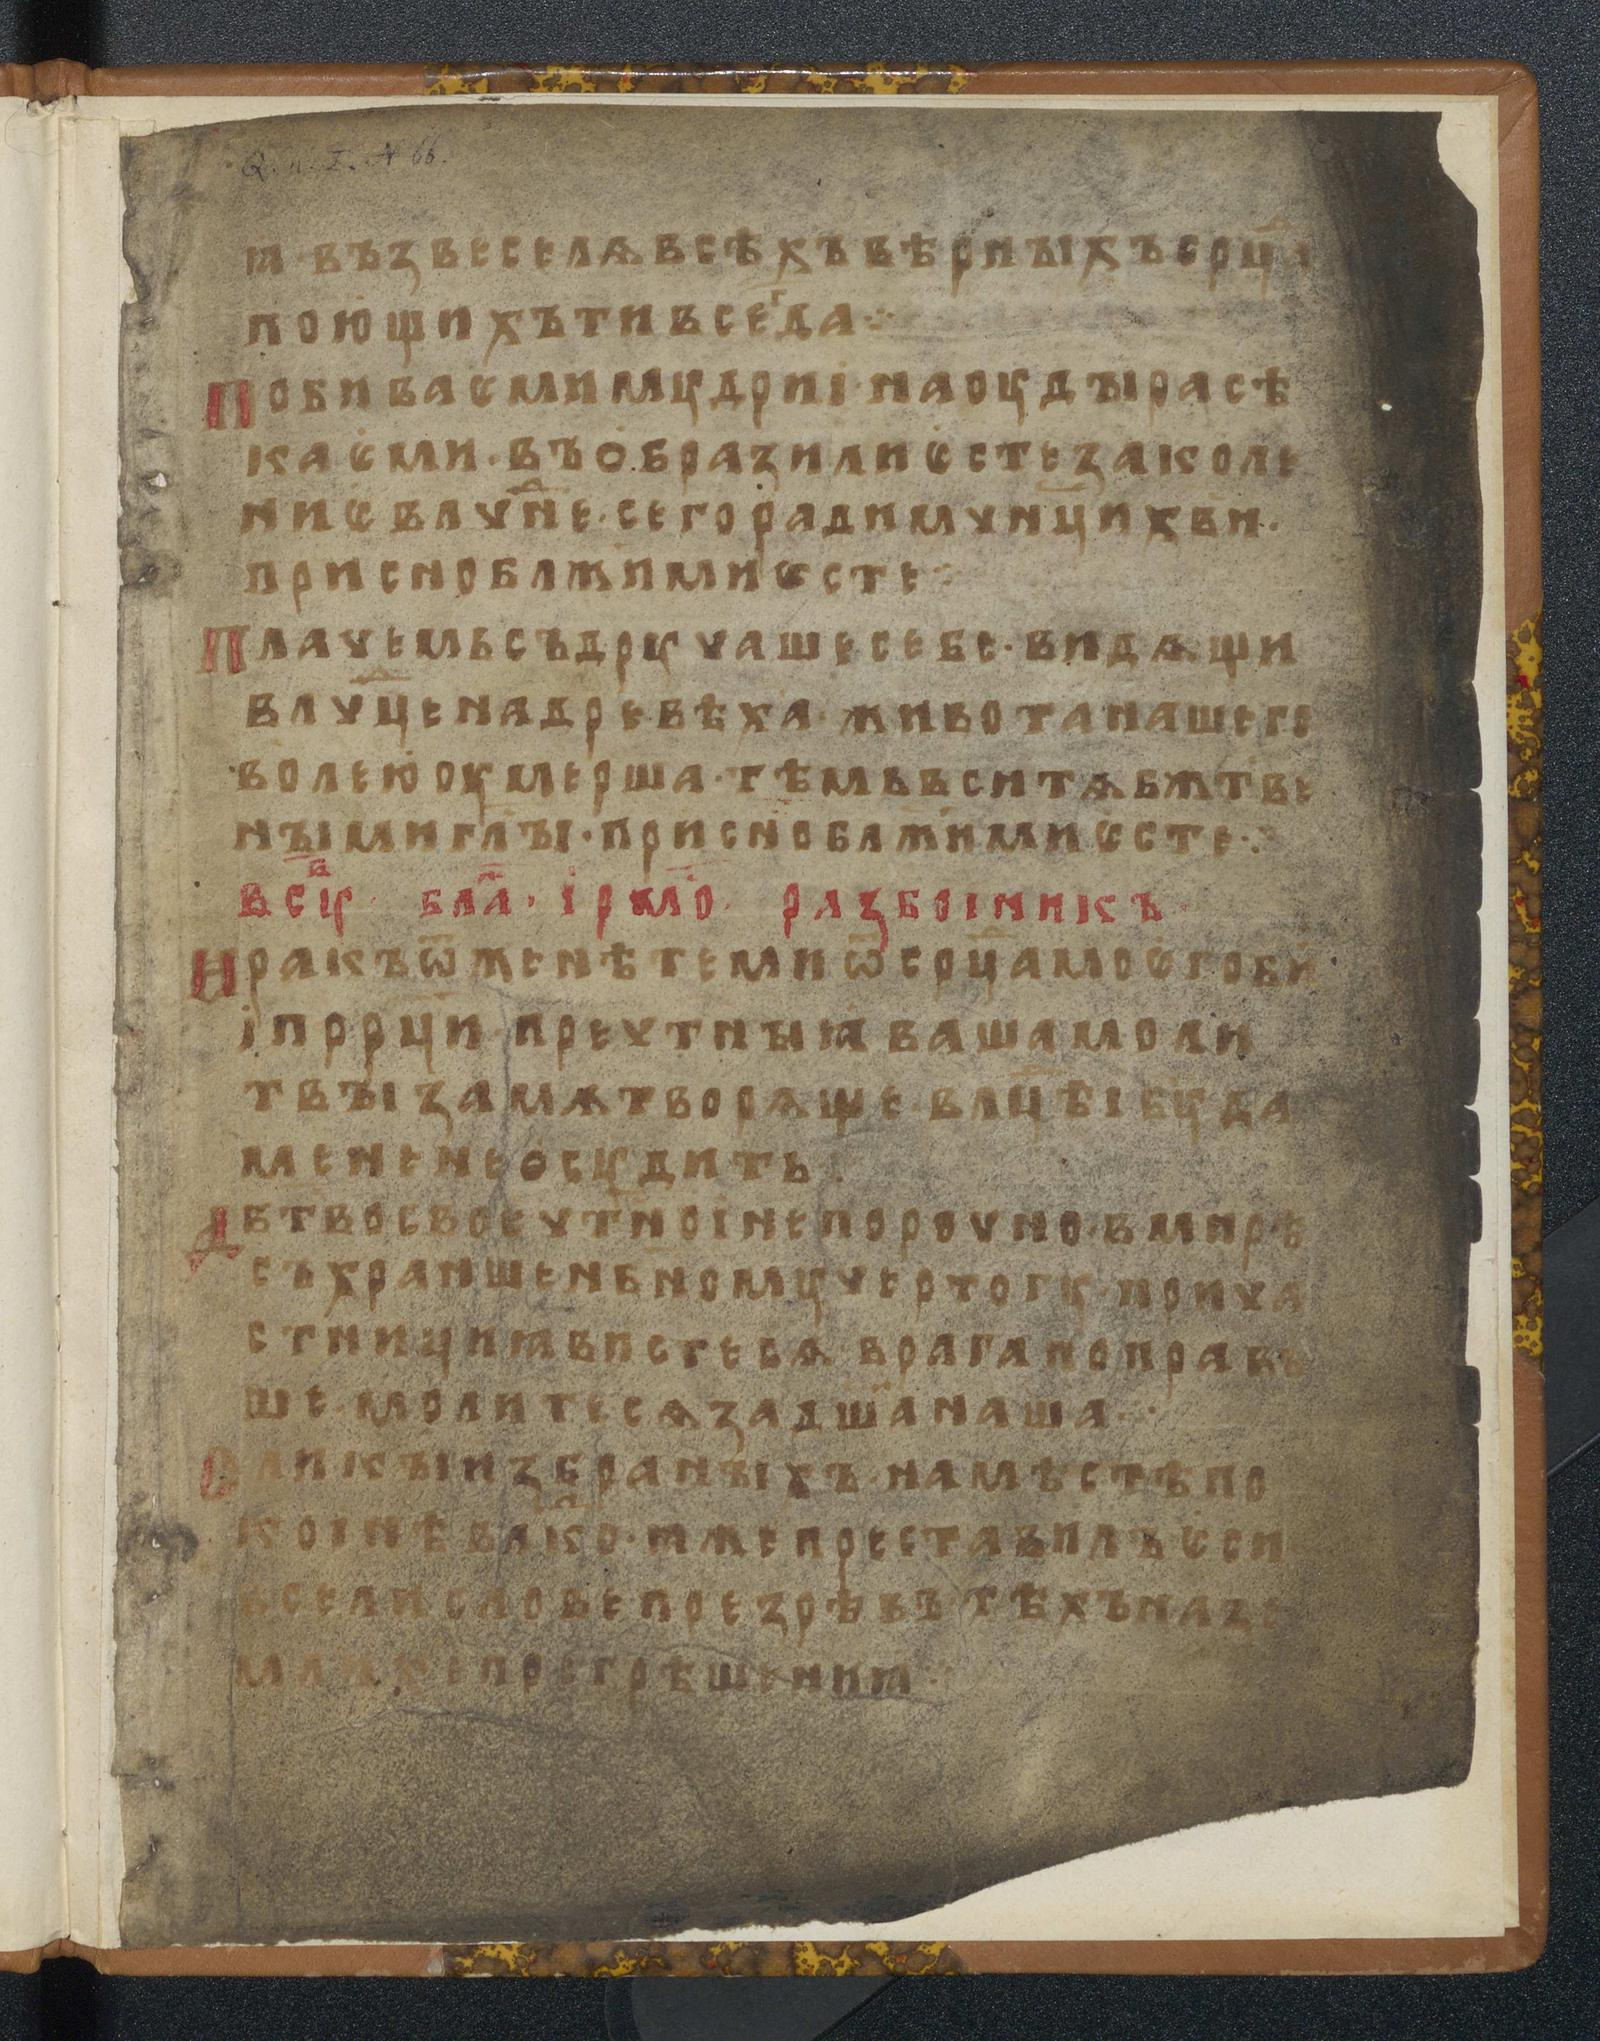 Q. п. I. № 66.
ꙗ·въꙁвеселѧвсѣхъвѣрныхъсрц҃а
поющихътивсегда⁘
Побиваѥмимꙋдриі·наоꙋдырасѣ
каѥми·въобраꙁилиѥстеꙁаколе
ниѥвлч҃не·сегорадимч҃нцихв҃и·
присноблж҃имиѥсте⁘
Плачемьсъдрꙋчашесебе·видѧщи
влч҃ценадревѣха·животанашего
волеюоꙋмерша·тѣмьвситѧбж҃тве
нымигл҃ы·присноблж҃имиѥсте⁘
всꙋв· бл҃а· ірмло҃· раꙁбоіникъ·
Мракъѿженѣтемиѿсрц҃амоѥгоби
іпррц҃и·преч҃тныꙗвашамоли
твыꙁамѧтворѧще·влц҃ѣібꙋда
мененеосꙋдить⁘
Дв҃твосвоеч҃тноінепорочно·вмирѣ
съхраншенбномꙋчертогꙋ·прича
стнициꙗвистесѧ·врагаправъ
ше·молитесѧꙁадш҃анаша⁘
Оликыиꙁбраныхъ·намѣстѣпо
коінѣвлк҃о·ꙗжепреставилъѥси
вселисловепреꙁрѣвътѣхънаꙁе
млижепрегрѣшениꙗ⁘